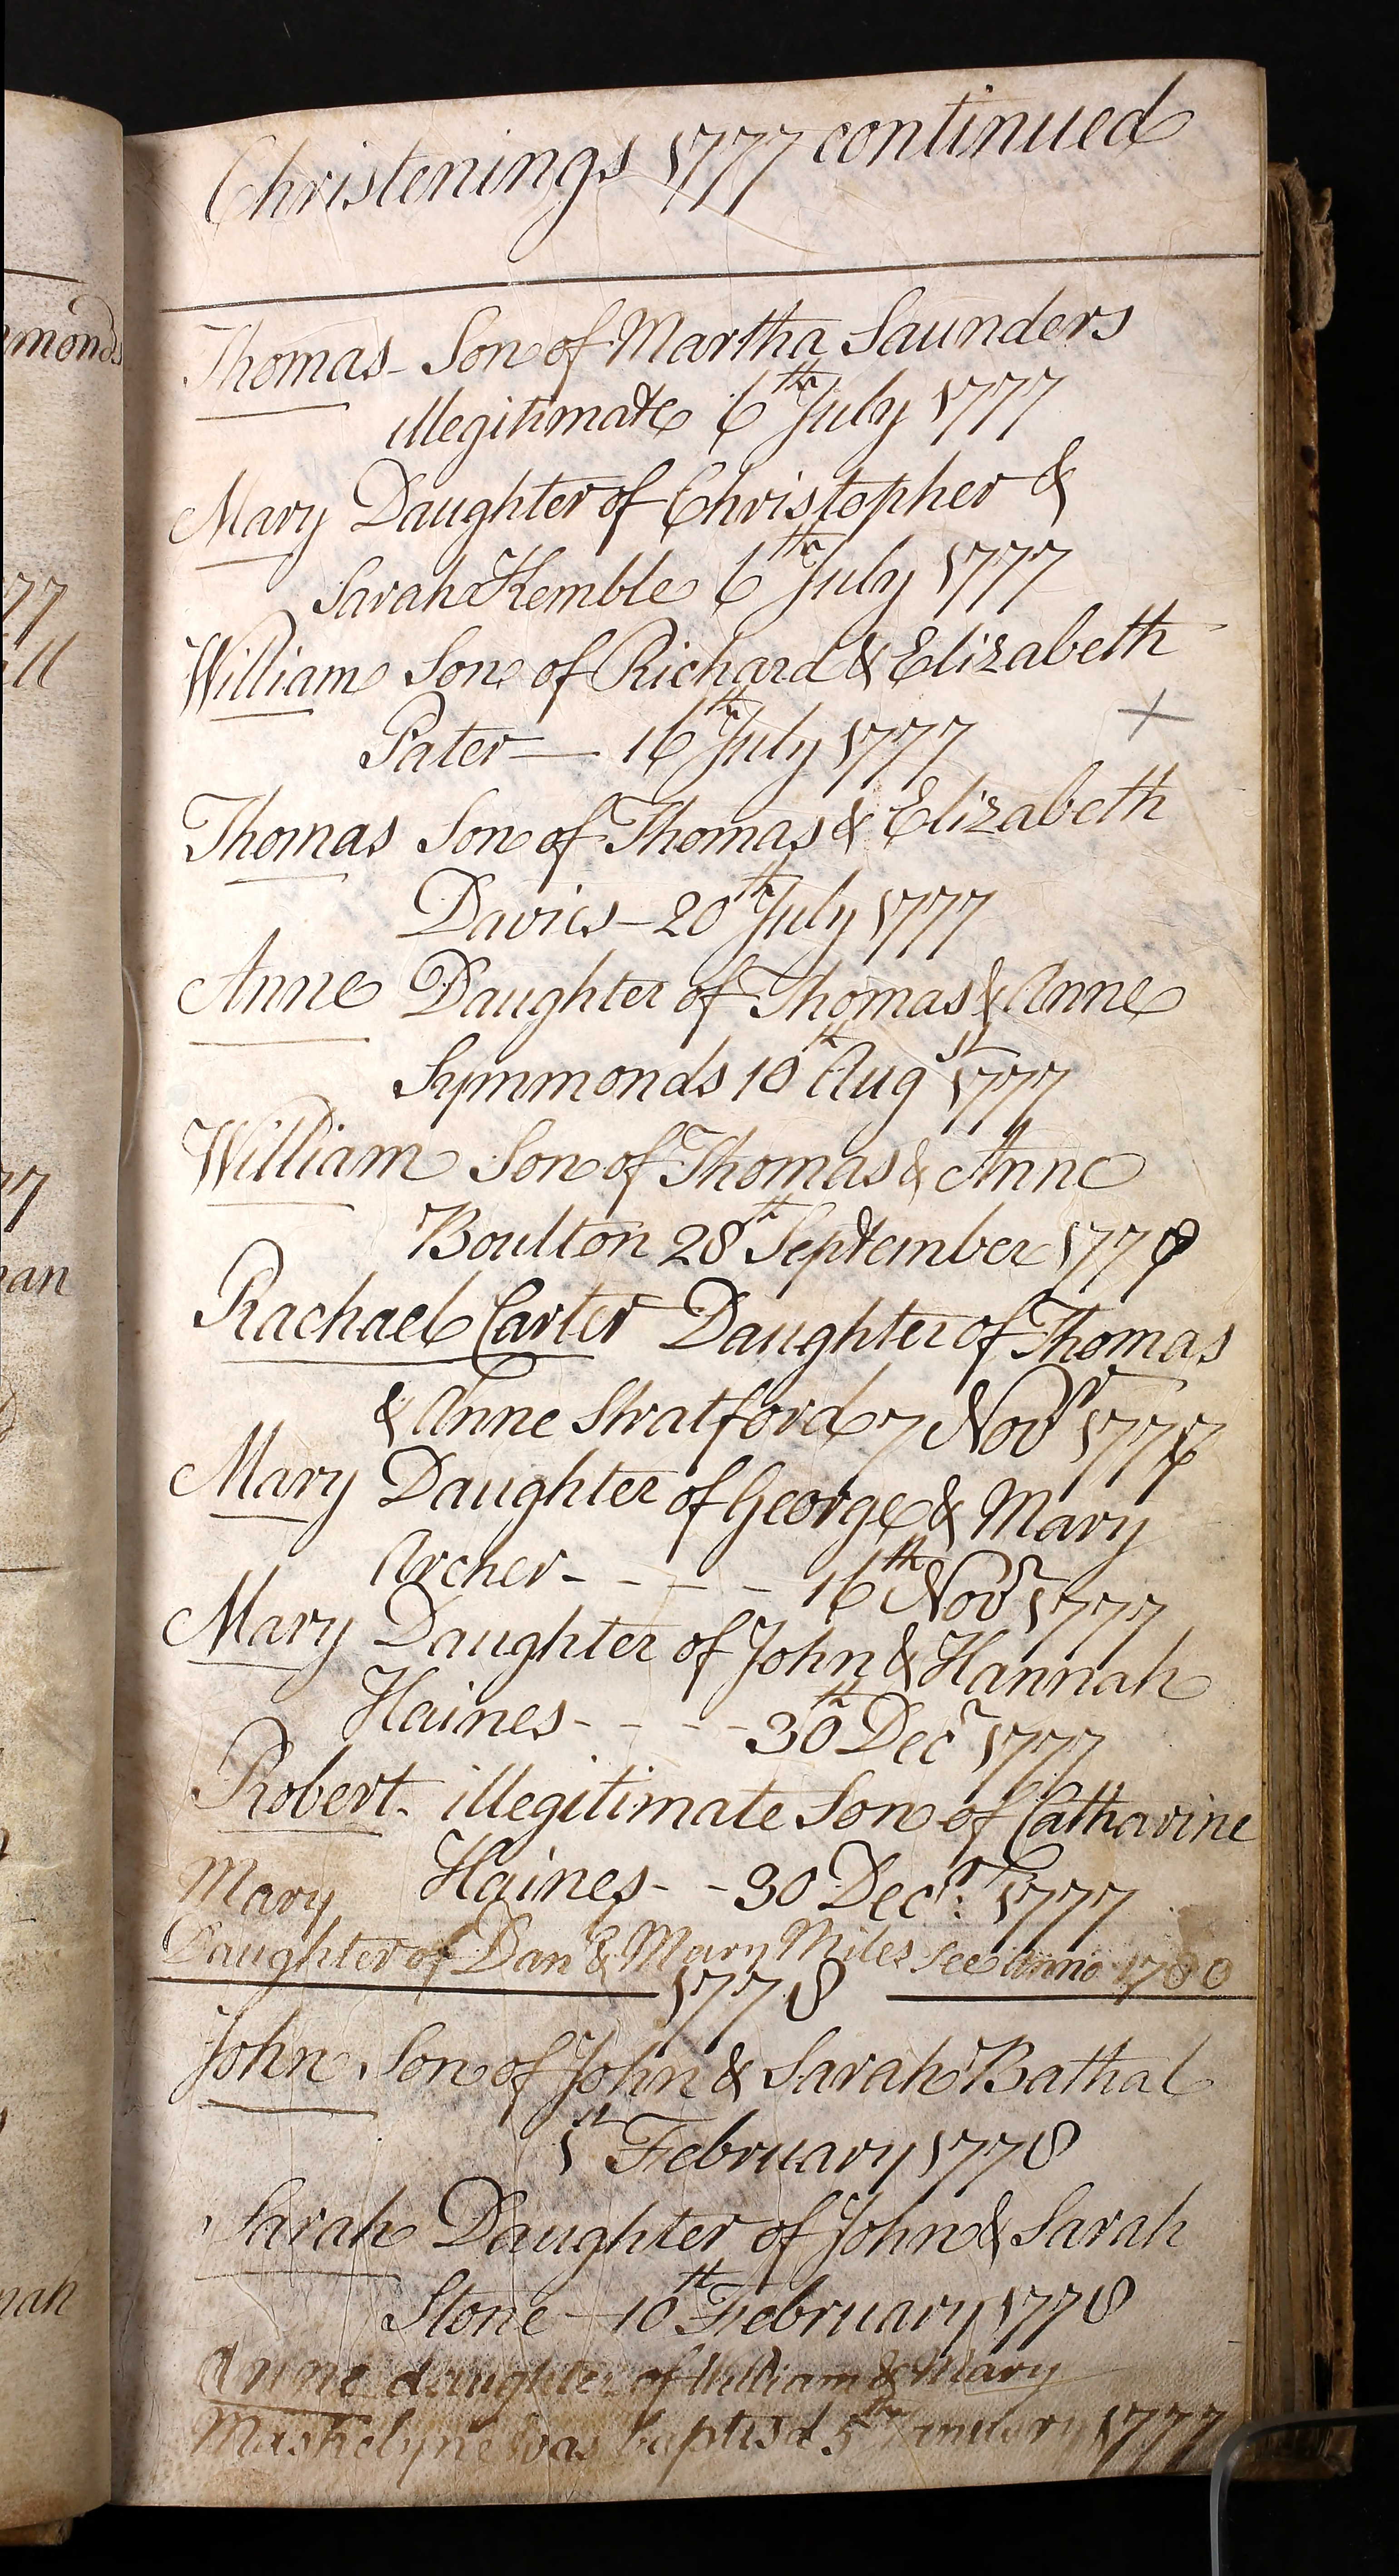 Christenings 1777 continued
Thomas Son of Martha Saunders
illegitimate 6th July 1777
Mary Daughter of Christopher &
Sarah Kemble 6th July 1777
William Son of Richard & Elizabeth
Pater — 16th July 1777
Thomas Son of Thomas & Elizabeth
Davies — 20th July 1777
Anne Daughter of Thomas & Anne
Symmonds 10th Augst 1777
William Son of Thomas & Anne
Boulton 28th September 177
Rachael Carter Daughter of Thomas
& Anne Stratford 7 Novr 1777
Mary Daughter of George & Mary
Archer - - - - 16th Novr 1777
Mary Daughter of John & Hannah
Haines - - - - 30th Decr 1777
Robert illegitimate Son of Catharine
Haines - - 30 Decr: 1777
Mary
Daughter of Dan & Mary Miles See anno 1780
1778
John Son of John & Sarah Bathal
1st February 1778
Sarah Daughter of John & Sarah
Stone — 10th February 1778
Anne daughter of William & Mary
Maskelyne was baptisd 5th January 1777
monds
77
ill
77
man
nah